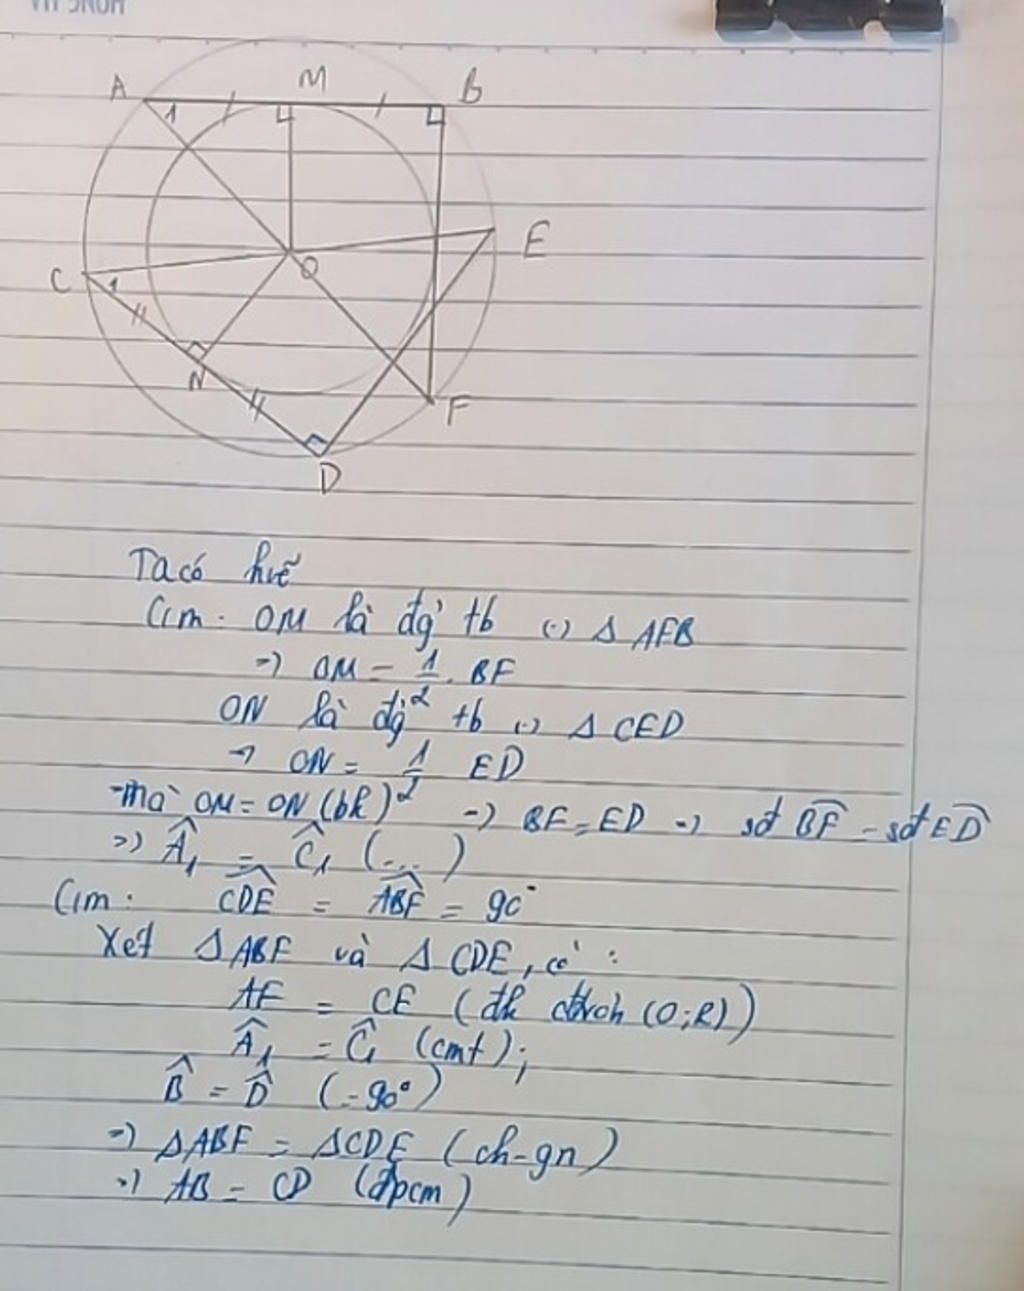 A
M
B
1
E
C
1
O
N
F
D
Ta có hvẽ
Cm: OM là đg tb (·) Δ AFB
=> OM = 1/2 . BF
ON là đg tb (·) Δ CED
=> ON = 1/2 ED
- mà OM = ON (bk) => BF = ED => sđ BF = sđ ED
=> Â1 = Ĉ1 (...)
Cm: CDE = ABF = 90°
Xét Δ ABF và Δ CDE, có :
AF = CE (đk (O;R))
Â1 = Ĉ1 (cmt);
B̂ = D̂ (= 90°)
=> ΔABF = ΔCDE (ch-gn)
=> AB = CD (đpcm)